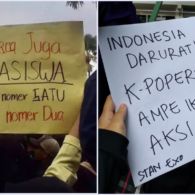 Juga
ASISWA
nomer SATU
nomer Dua
INDONESIA
DARURAT
K-POPER
AMPE
AKSI
STAN EXO